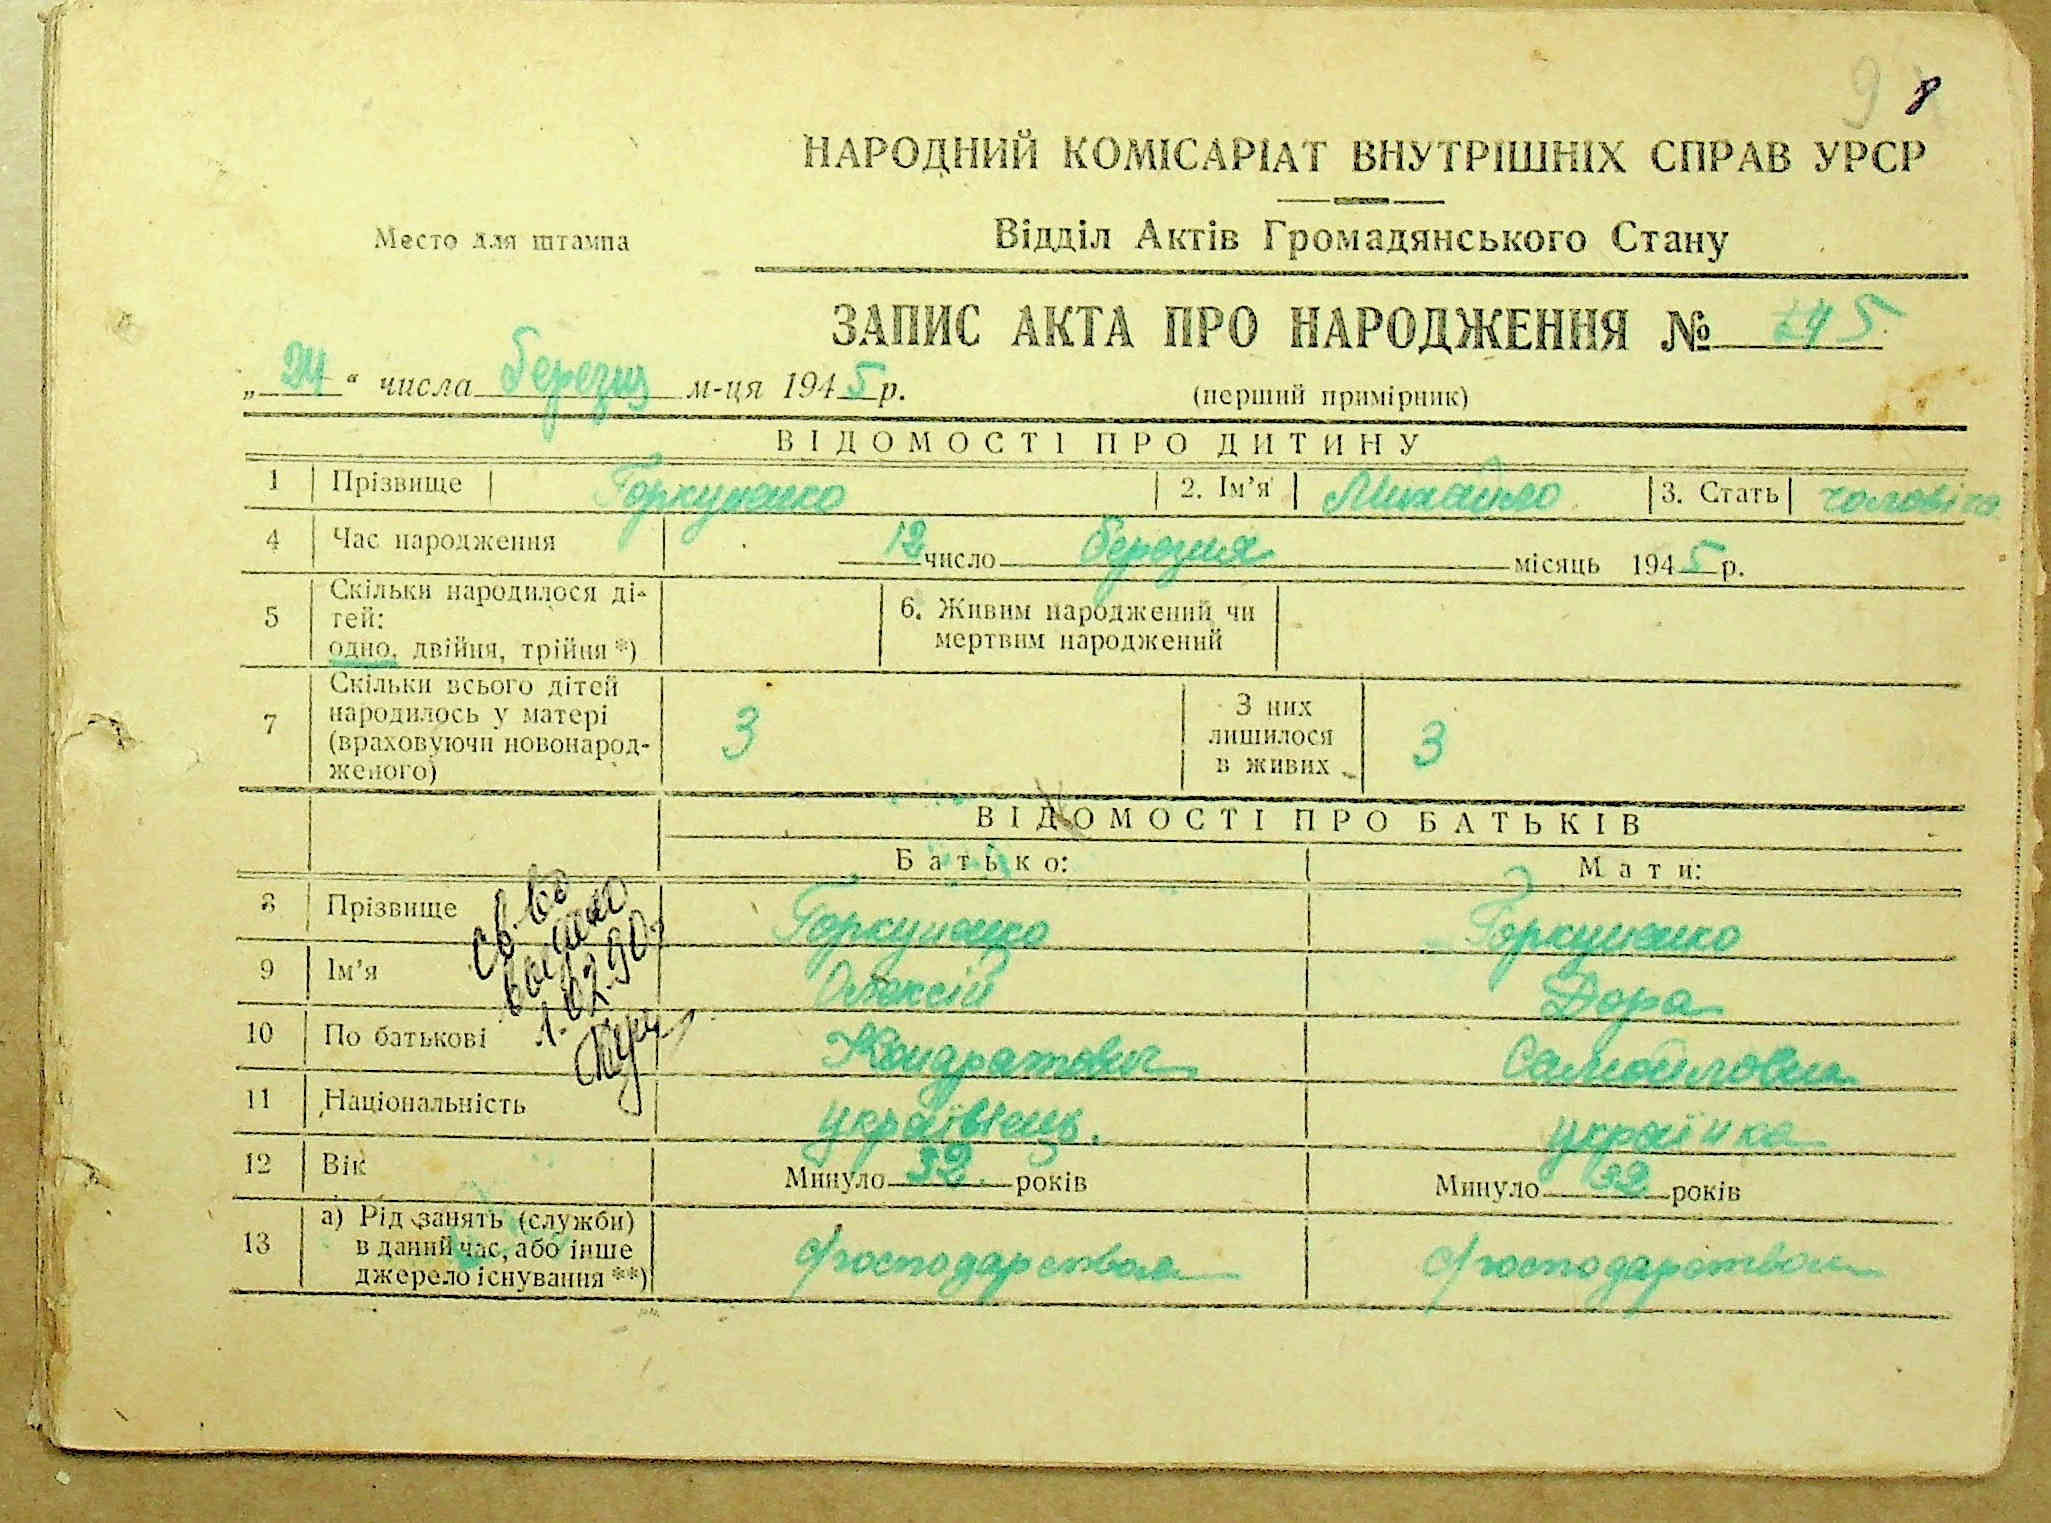 9 8
НАРОДНИЙ КОМІСАРІАТ ВНУТРІШНІХ СПРАВ УРСР
Место для штампа
Відділ Актів Громадянського Стану
ЗАПИС АКТА ПРО НАРОДЖЕННЯ №
„ “ числа березня м-ця 1945 р.
(перший примірник)
ВІДОМОСТІ ПРО ДИТИНУ
1 Прізвище Горкуненко 2. Ім'я Михайло 3. Стать
4 Час народження 12 число березня місяць 1945 р.
5 Скільки народилося ді-
тей:
одно, двійня, трійня *)
6. Живим народжений чи
мертвим народжений
7 Скільки всього дітей
народилось у матері
(враховуючи новонарод-
женого)
3
З них
лишилося
в живих
3
ВІДОМОСТІ ПРО БАТЬКІВ
Батько: Мати:
8 Прізвище Горкуненко Горкуненко
9 Ім'я Олексій Дора
10 По батькові Кондратович Самойловна
11 Національність українець. українка
12 Вік Минуло 32 років Минуло 32 років
13 а) Рід занять (служби)
в даний час, або інше
джерело існування **)
с/господарством с/господарством
св-во
выдано
1.02.90.